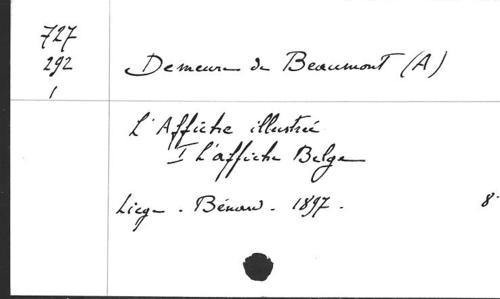 727
292
1
Demeure de Beaumont (A)
L'Affiche illustrée
I L'affiche Belge
Liège - Bénard - 1897 - 8°